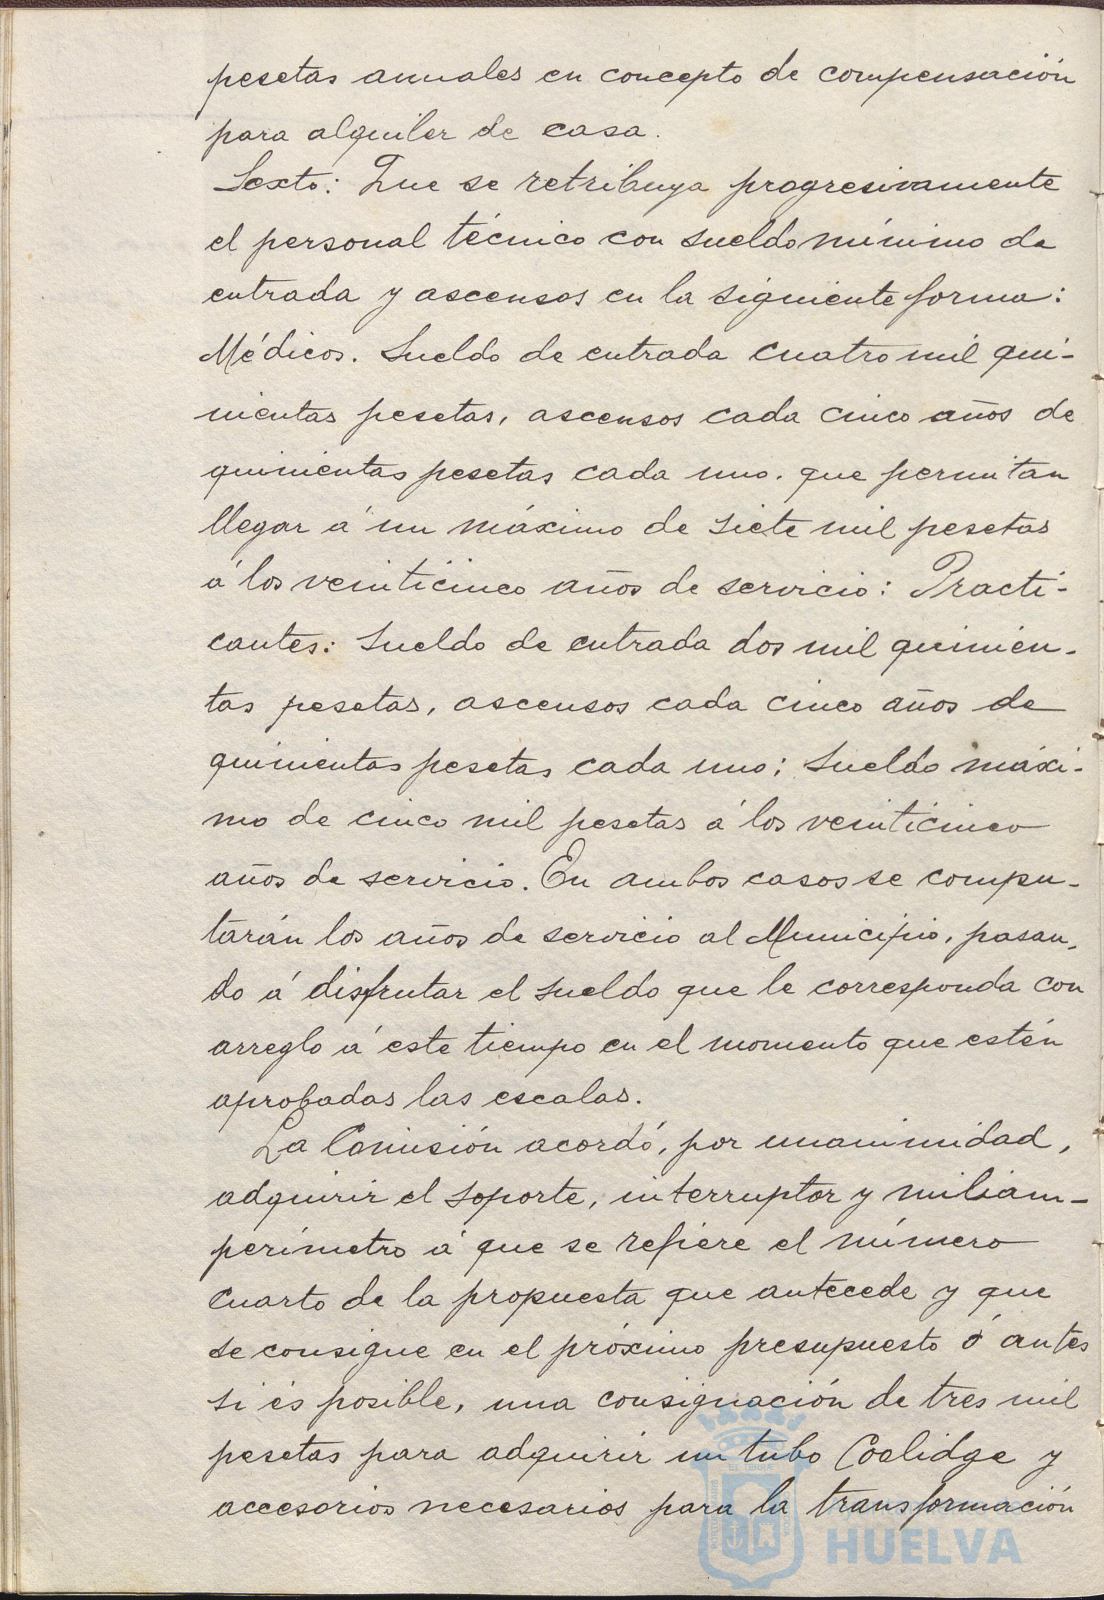 pesetas anuales en concepto de compensación
para alquiler de casa.
Sexto: Que se retribuya progresivamente
el personal técnico con sueldo mínimo de
entrada y ascensos en la siguiente forma:
Médicos. Sueldo de entrada cuatro mil qui-
nientas pesetas, ascensos cada cinco años de
quinientas pesetas cada uno. que permitan
llegar á un máximo de siete mil pesetas
á los veinticinco años de servicio: Practi-
cantes: Sueldo de entrada dos mil quinien-
tas pesetas, ascensos cada cinco años de
quinientas pesetas cada uno; Sueldo máxi-
mo de cinco mil pesetas á los veinticinco
años de servicio. En ambos casos se compu-
tarán los años de servicio al Municipio, pasan-
do á disfrutar el sueldo que le corresponda con
arreglo á este tiempo en el momento que estén
aprobadas las escalas.
La Comisión acordó, por unanimidad,
adquirir el soporte, interruptor y miliam-
perímetro á que se refiere el número
cuarto de la propuesta que antecede y que
se consigue en el próximo presupuesto ó antes
si és posible, una consignación de tres mil
pesetas para adquirir un tubo Coolidge y
accesorios necesarios para la transformación
HUELVA